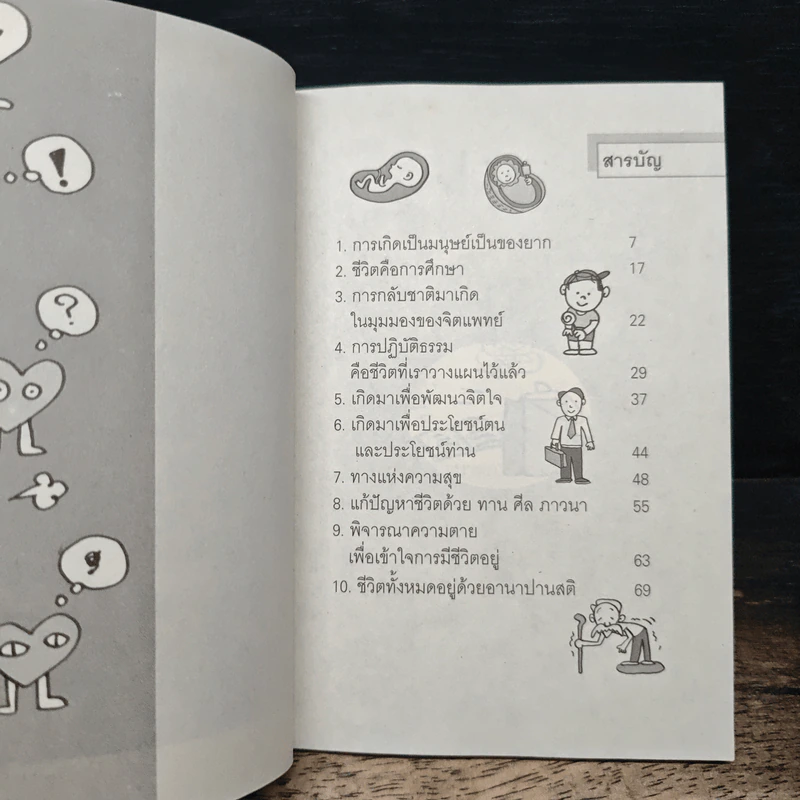 !
?
สารบัญ
1. การเกิดเป็นมนุษย์เป็นของยาก 7
2. ชีวิตคือการศึกษา 17
3. การกลับชาติมาเกิด
ในมุมมองของจิตแพทย์ 22
4. การปฏิบัติธรรม
คือชีวิตที่เราวางแผนไว้แล้ว 29
5. เกิดมาเพื่อพัฒนาจิตใจ 37
6. เกิดมาเพื่อประโยชน์ตน
และประโยชน์ท่าน 44
7. ทางแห่งความสุข 48
8. แก้ปัญหาชีวิตด้วย ทาน ศีล ภาวนา 55
9. พิจารณาความตาย
เพื่อเข้าใจการมีชีวิตอยู่ 63
10. ชีวิตทั้งหมดอยู่ด้วยอานาปานสติ 69